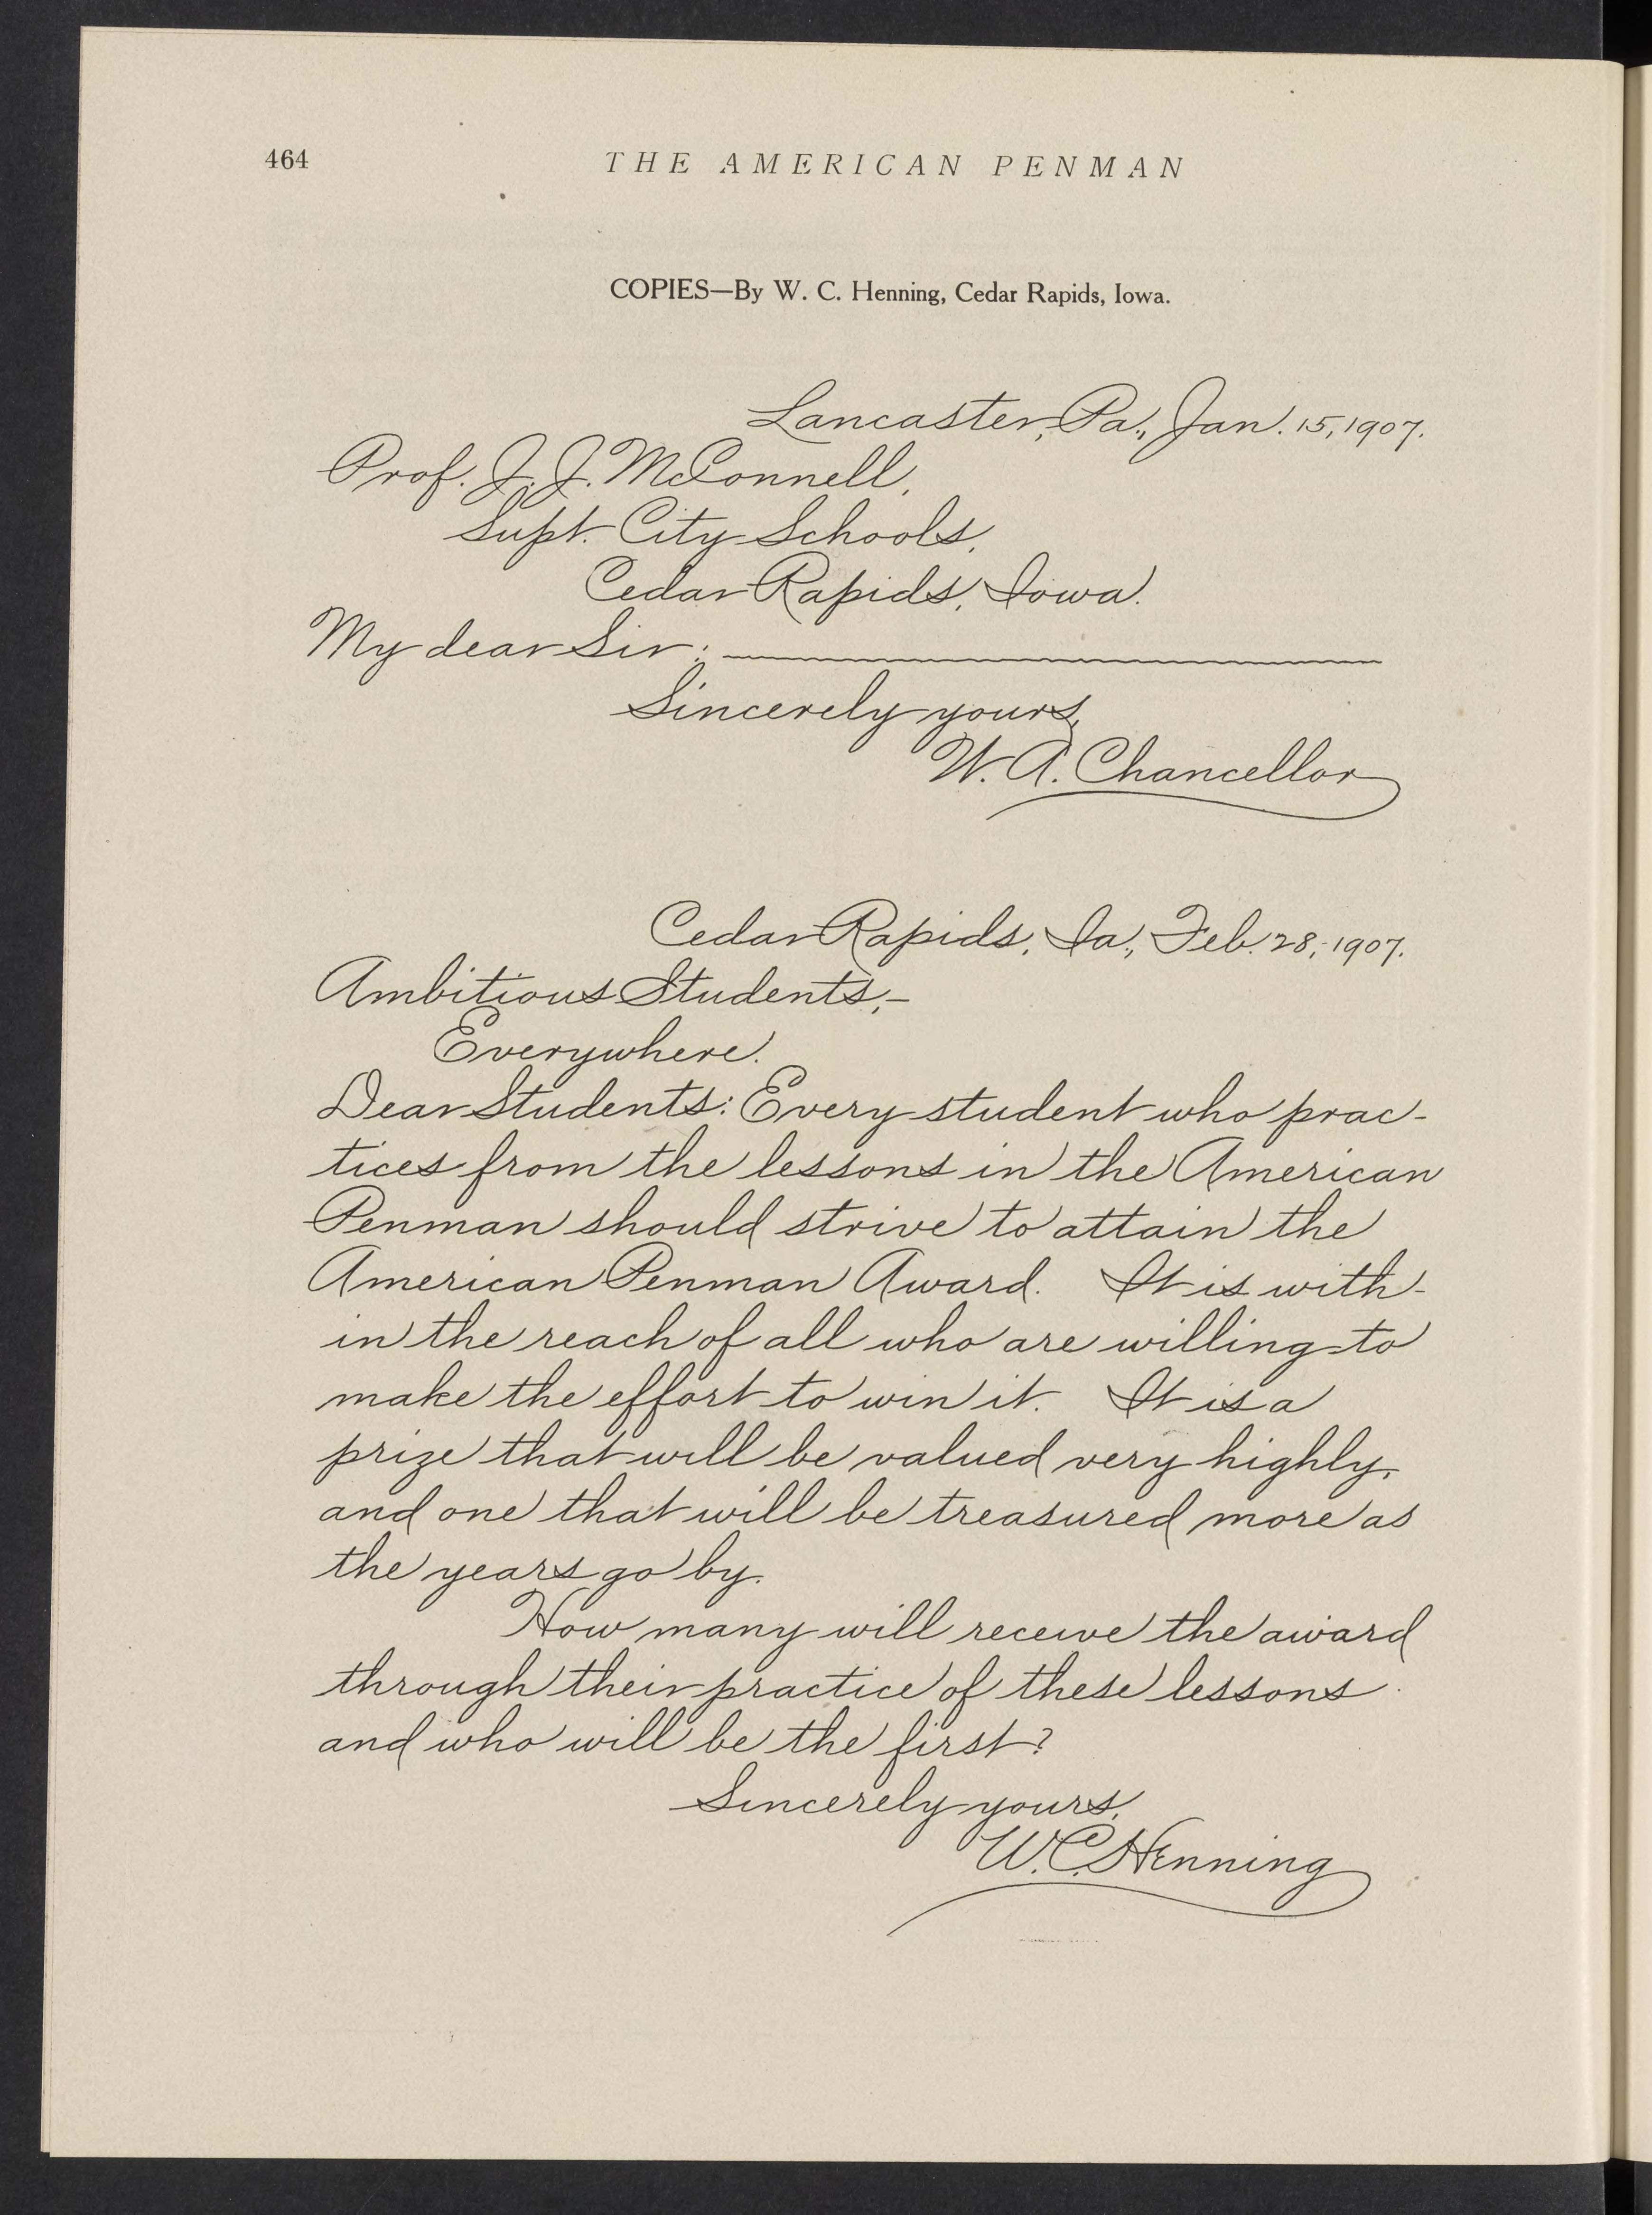 464
THE AMERICAN PENMAN
COPIES—By W. C. Henning, Cedar Rapids, Iowa.
Lancaster, Pa., Jan. 15, 1907.
Prof. J. J. McConnell,
Supt. City Schools,
Cedar Rapids, Iowa.
My dear Sir:
Sincerely yours,
W. A. Chancellor
Cedar Rapids, Ia., Feb. 28, 1907.
Ambitious Students,—
Everywhere.
Dear Students: Every student who prac-
tices from the lessons in the American
Penman should strive to attain the
American Penman Award. It is with-
in the reach of all who are willing to
make the effort to win it. It is a
prize that will be valued very highly,
and one that will be treasured more as
the years go by.
How many will receive the award
through their practice of these lessons
and who will be the first?
Sincerely yours,
W. C. Henning